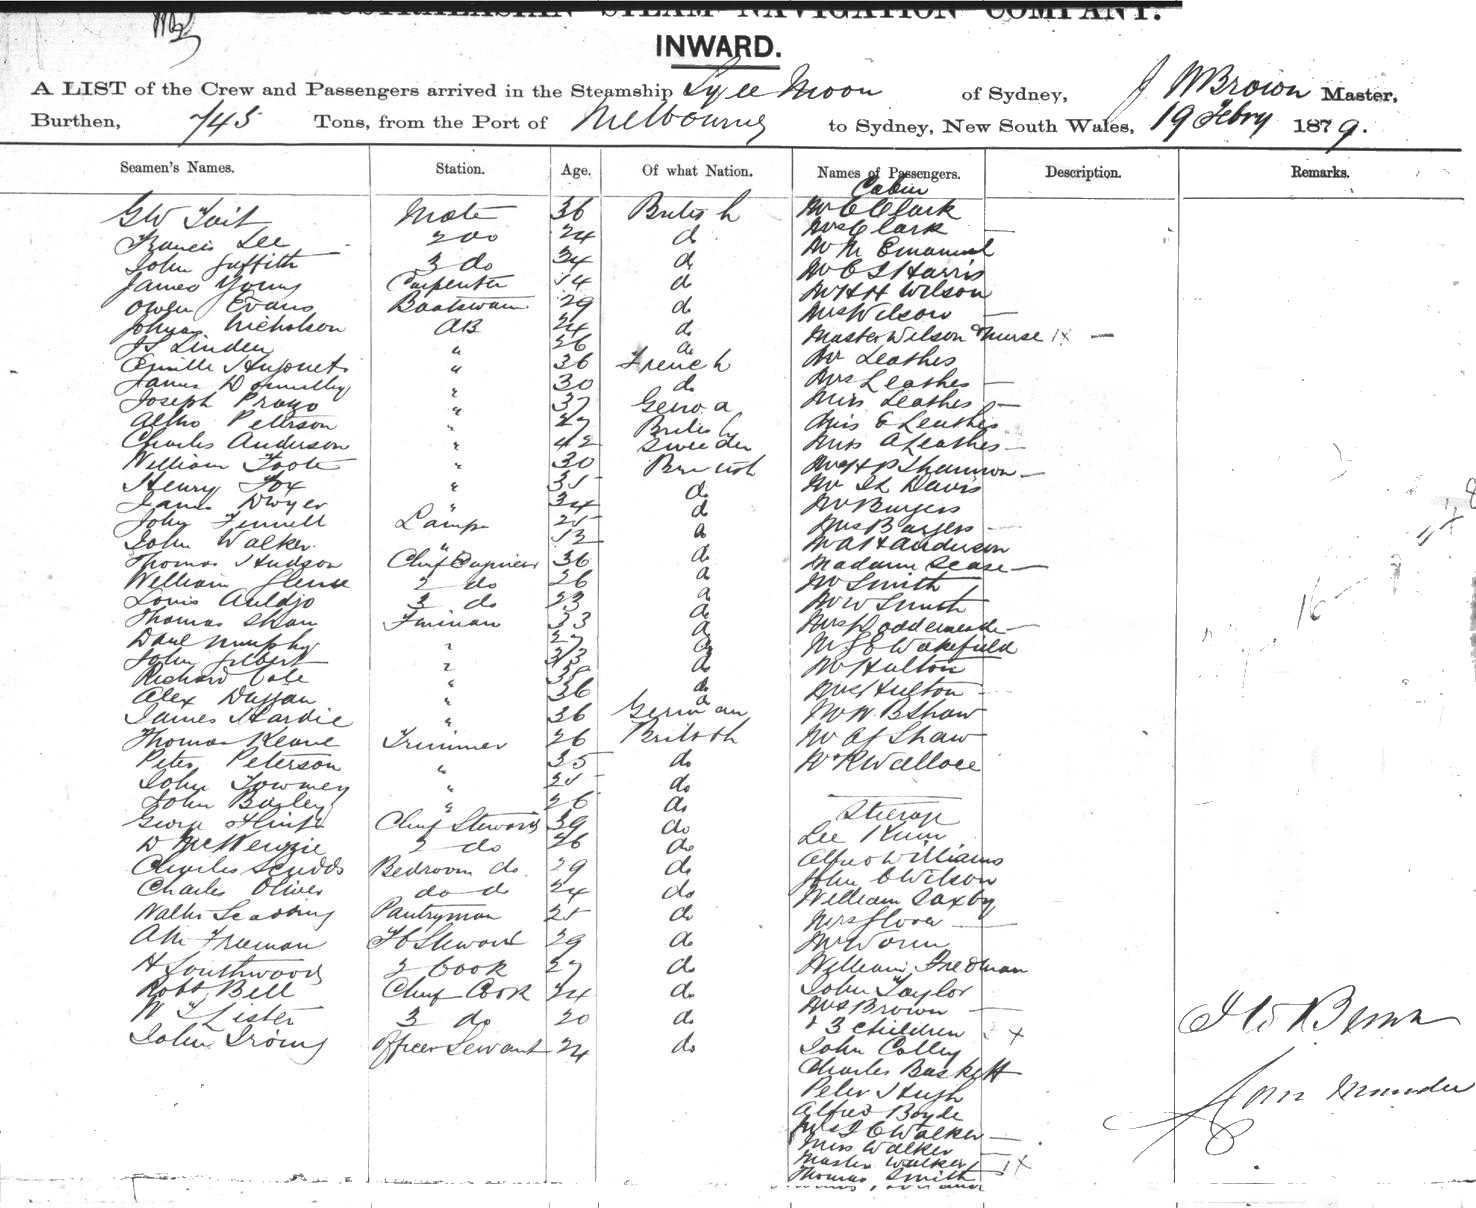 AUSTRALASIAN STEAM NAVIGATION COMPANY.
INWARD.
A LIST of the Crew and Passengers arrived in the Steamship Lyee Moon of Sydney, J W Brown Master,
Burthen, 745 Tons, from the Port of Melbourne to Sydney, New South Wales, 19 Febry 1879.
Seamen's Names. Station. Age. Of what Nation. Names of Passengers. Description. Remarks.
Cabin
G W Tait Mate 36 British Mr C Clark
Francis Lee 2 do 24 do Mrs Clark
John Griffith 3 do 34 do Mr M Emanuel
James Young Carpenter 54 do Mr E S Harris
Owen Evans Boatswain 29 do Mr H H Wilson
Nicholson AB 24 do Mrs Wilson
J S Linden " 26 do Master Wilson & Nurse 1x
" 36 French Mr Leathes
James Donnelly " 30 do Mrs Leathes
Joseph " 37 Genoa Miss Leathes
Peterson " 27 British Miss E Leathes
Charles Anderson " 42 Sweeden Miss A Leathes
William Foote " 30 British Shannon
Henry Fox " 35 do Davis
James Dwyer " 34 do Mr Burgess
John Fennell Lamps 25 do Mrs Burgess
John Walker " 52 do Anderson
Thomas Hudson Chief Engineer 36 do Madame
William 2 do 26 do Mr Smith
Louis Auldjo 3 do 23 do Mr W Smith
Thomas Shaw Fireman 33 do Mrs
Danl Murphy " 27 do Wakefield
John Gilbert " 33 do Mr Hulton
Richard Cole " 38 do Mrs Hulton
Alex Duggan " 36 do Mr W B Shaw
James Hardie " 36 German Mr A J Shaw
Thomas Keane Trimmer 26 British Mr R Wallace
Peter Peterson " 35 do
John Towmey " 25 do
John Bagley " 26 do Steerage
George Chief Steward 39 do Lee Kum
D McKenzie 2 do 26 do Alfred Williams
Charles Scudds Bedroom do. 29 do John C Wilson
Charles Oliver do do 24 do William Saxby
Walter Pantryman 25 do Mrs Glover
Freeman F C Steward 29 do Mr Worm
H Southwood 2 Cook 27 do William Freeman
Robt Bell Chief Cook 24 do John Taylor
W T Lister 3 do 20 do Mrs Brown
John Irving Officer Servant 24 do & 3 children 3 x
John Colley
Charles Baskett
Peter Hugh
Alfred Boyde
Walker
Miss Walker
Master Walker 1x
Thomas Smith
16
J W Brown